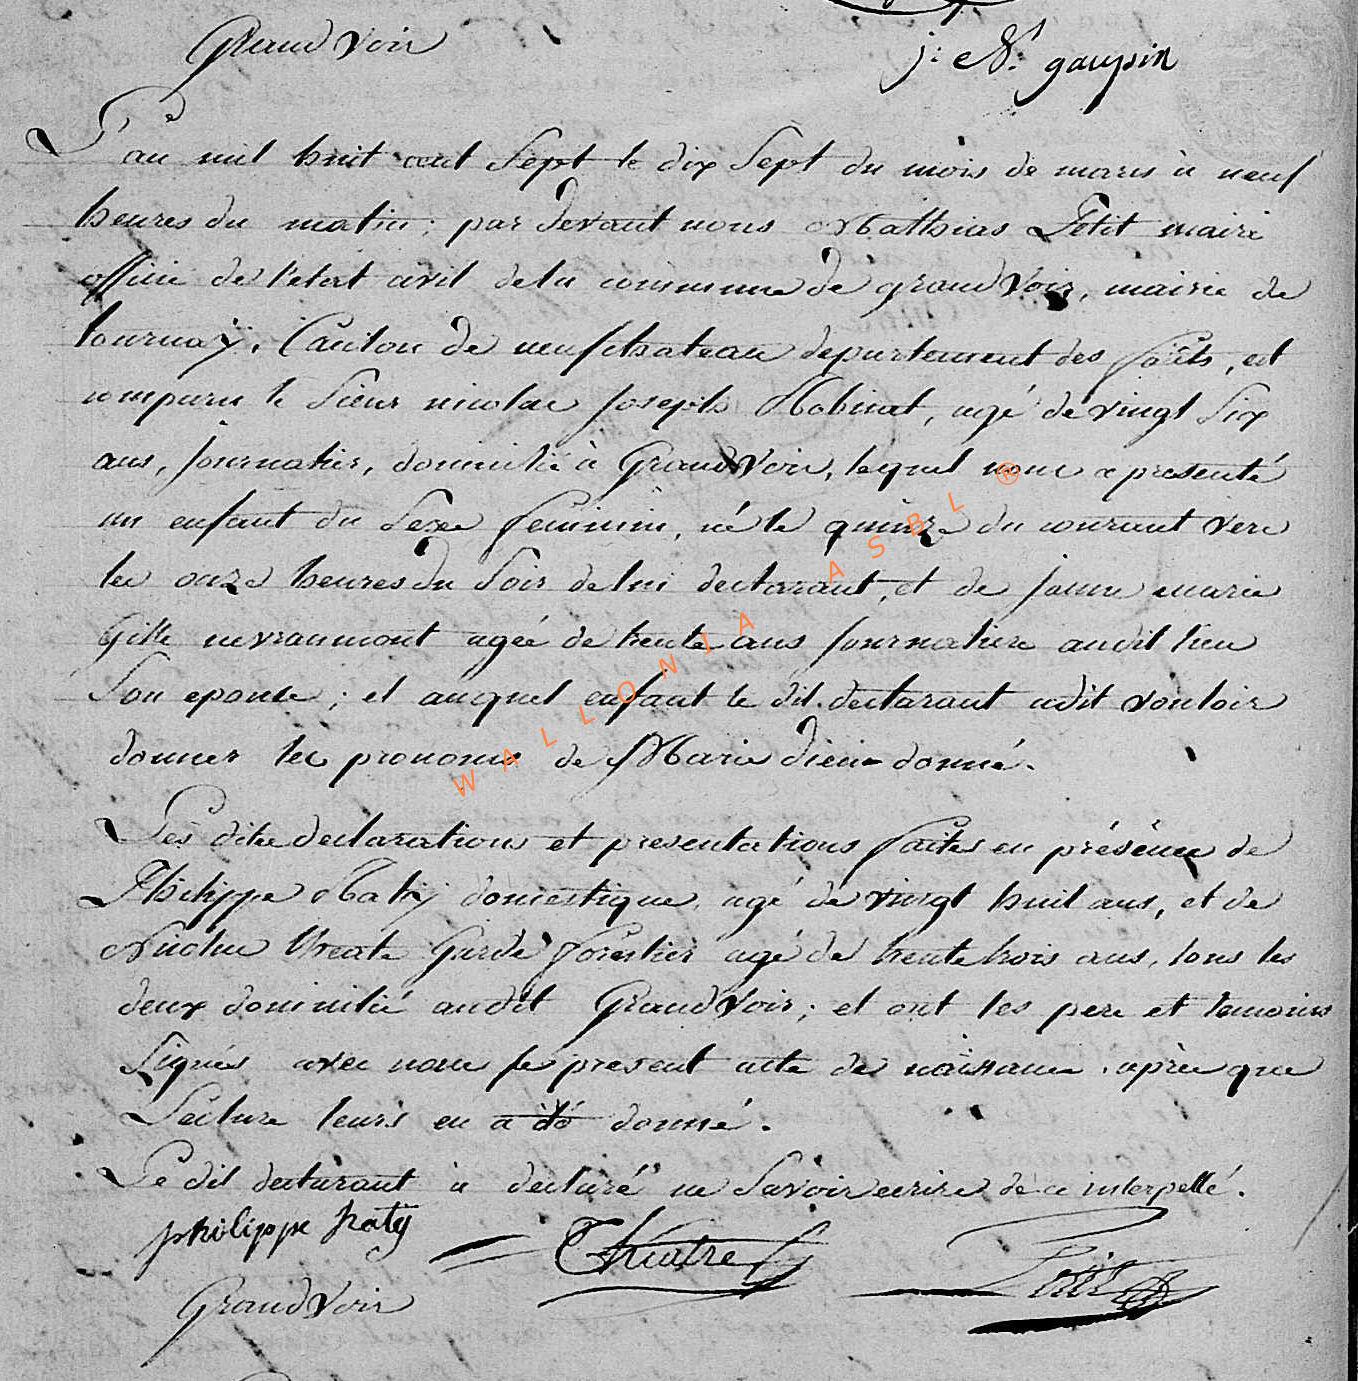 Grand Voir
j: N: gaupin
L'an mil huit cent Sept le dix Sept du mois de mars à neuf
heures du matin; par devant nous Mathias Petit maire
officie de l'etat civil de la commune de grand Voir, mairie de
tournay, Canton de neufchateau departement des forêts, est
comparu le Sieur nicolas Joseph Robinet, agé de vingt Six
ans, journalier, domicilié à Grand Voir, lequel nous a presenté
un enfant du Sexe feminin, né le quinze du courant vers
les onze heures du Soir de lui declarant, et de jeanne marie
Gille nevraumont agée de trente ans journaliere audit lieu
Son epouse; et auquel enfant le dit declarant a dit vouloir
donner les prenoms de Marie dieu-donné.
Les dites declarations et presentations faites en présence de
Philippe domestique, agé de vingt huit ans, et de
Nicolas Garde forestier agé de trente trois ans, tous les
deux domicilié audit Grand Voir; et ont les pere et temoins
Signés avec nous le present acte de naissance après que
Lecture leurs en a été donné.
Le dit declarant a declaré ne Savoir ecrire de ce interpellé.
philippe
Petit
Grand Voir
WALLONIA ASBL ®